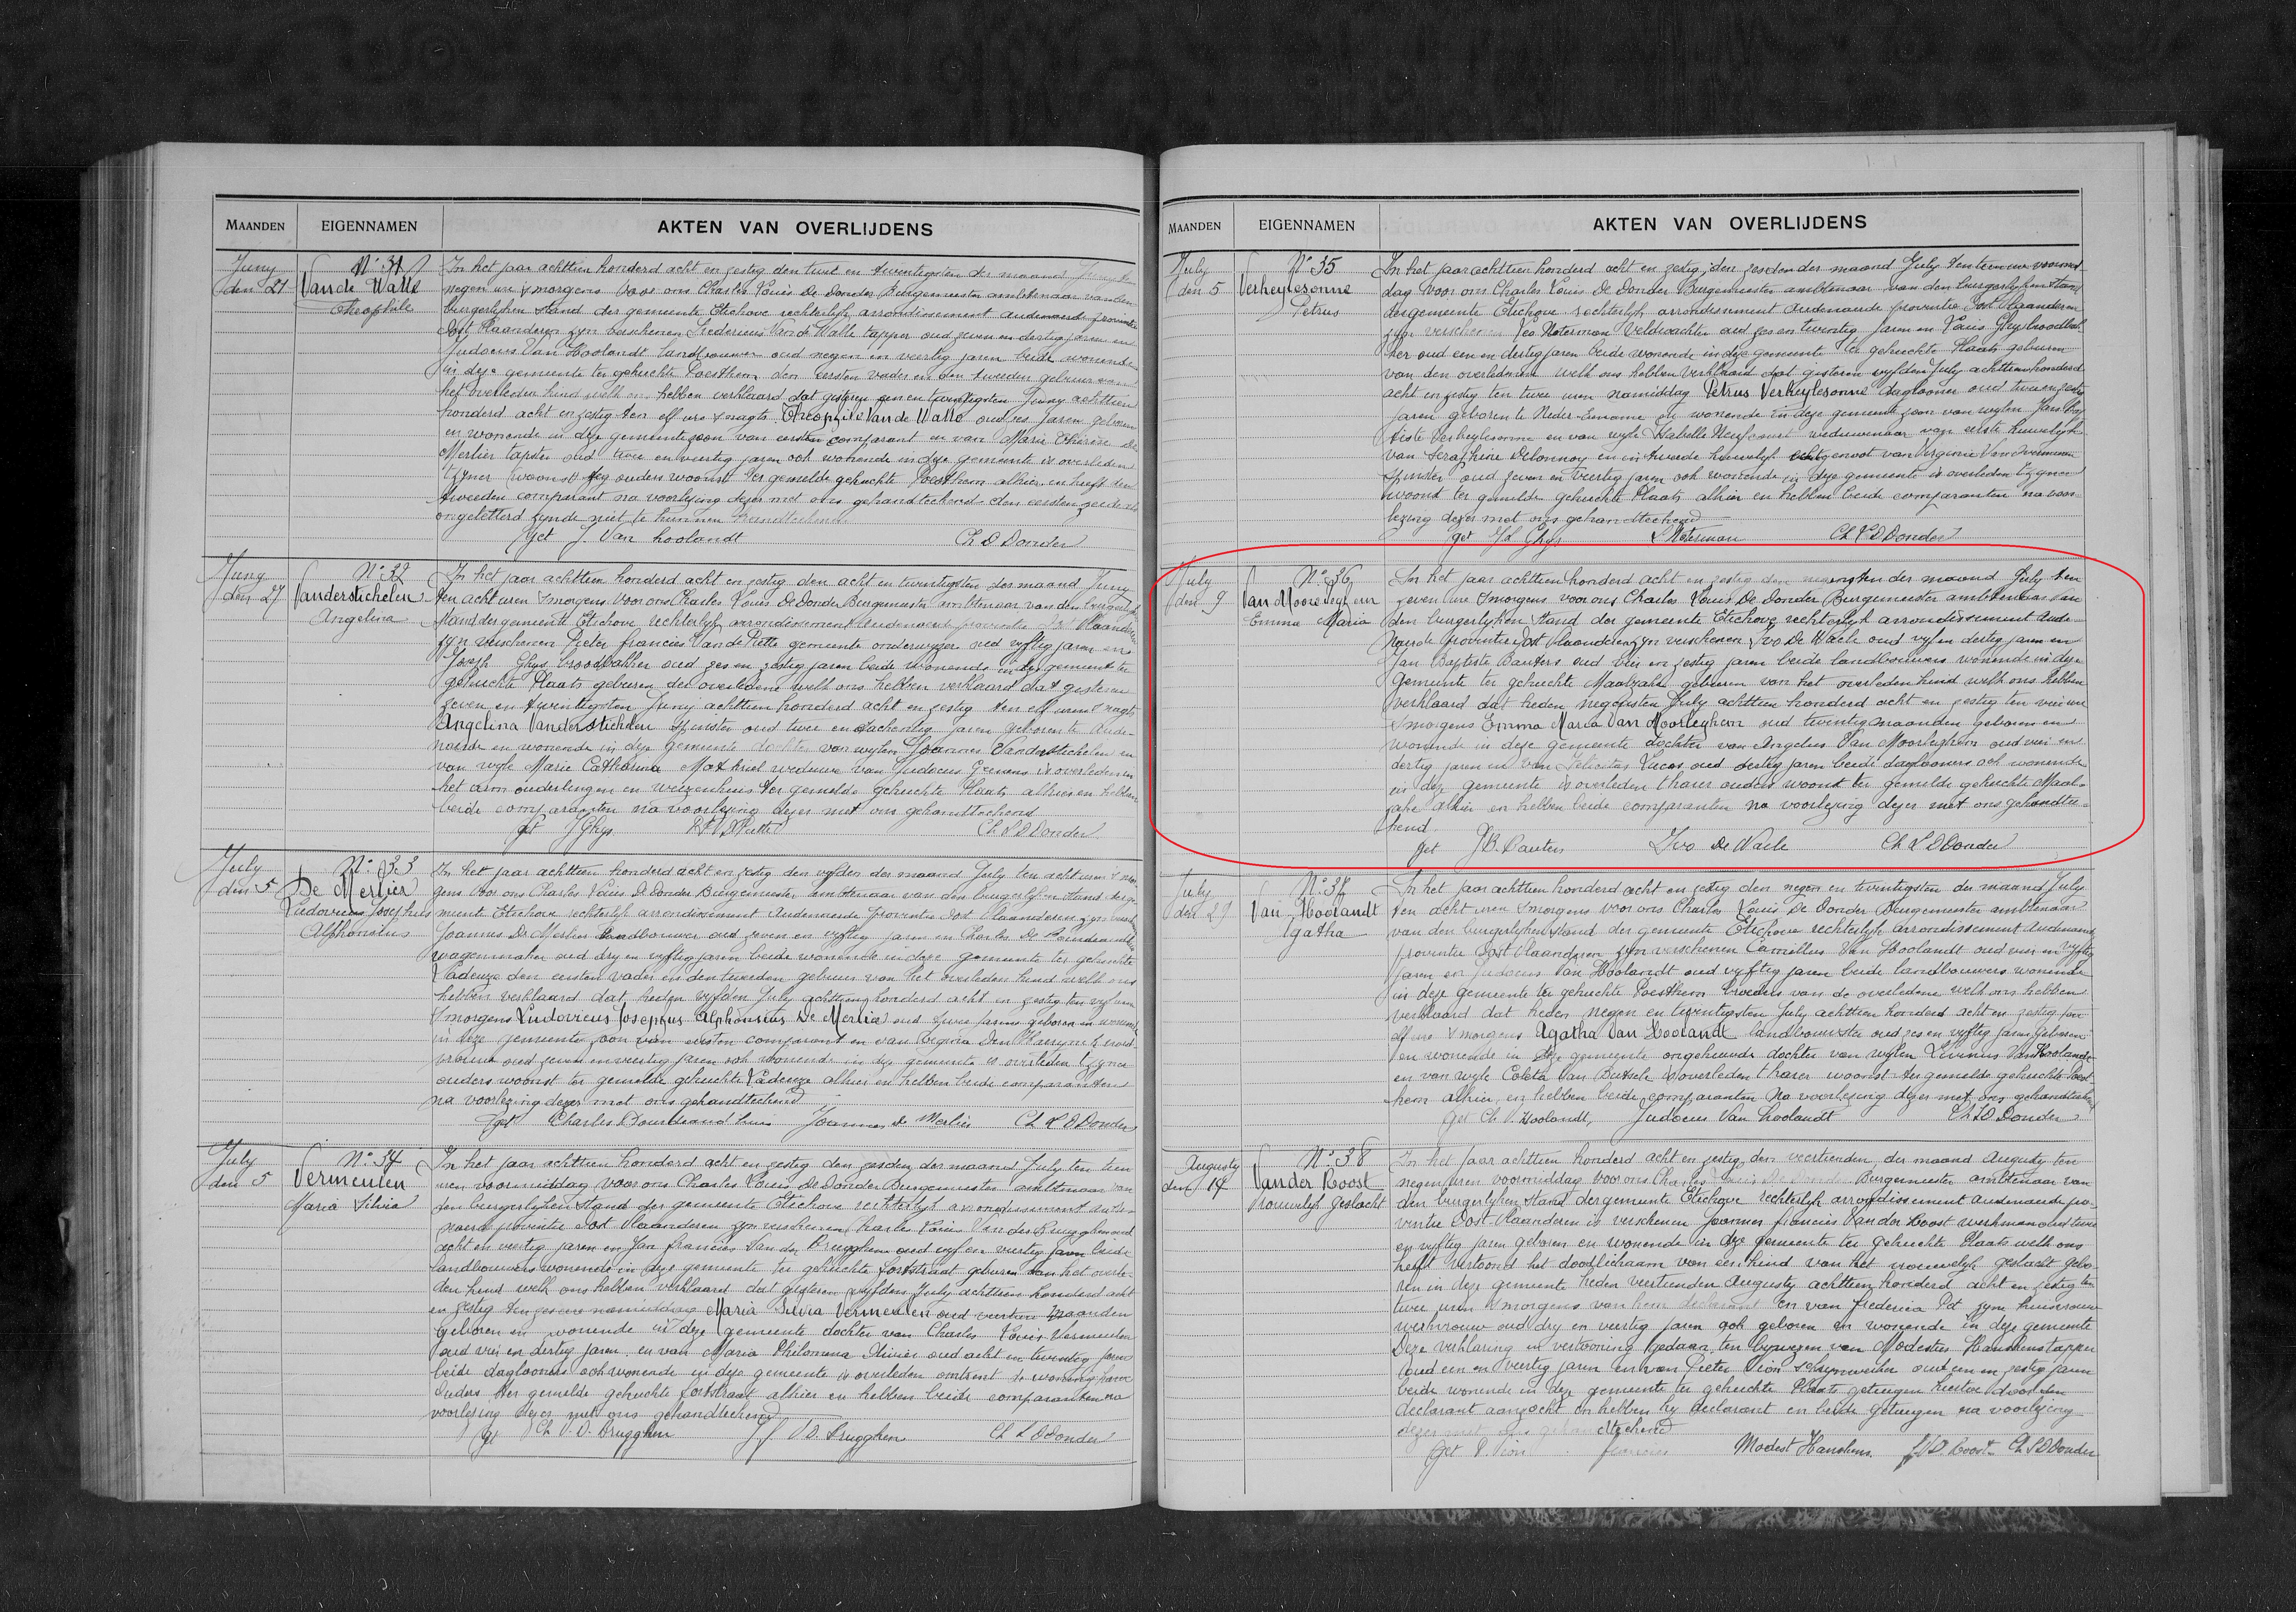 MAANDEN
EIGENNAMEN
AKTEN VAN OVERLIJDENS
Juny
den 21
N° 31
Van de Walle
Theophile
In het jaar achttien honderd acht en zestig den twee en twintigsten der maand Juny ten
negen ure smorgens voor ons Charles Louis De Donder Burgemeester ambtenaar van den
burgerlyken stand der gemeente Etichove rechterlyk arrondissement Audenaerde provintie
Oost Vlaanderen zyn verschenen Fredericus Van de Walle tapper oud zeven en dertig jaren en
Judocus Van Hoolandt landbouwer oud negen en veertig jaren beide wonende
in deze gemeente ter gehuchte Poesthem den eersten vader en den tweeden gebuur van
het overleden kind welk ons hebben verklaard dat gisteren een en twintigsten Juny achttien
honderd acht en zestig ten elf ure snagts Theophile Van de Walle oud zes jaren geboren
en wonende in deze gemeente zoon van eersten comparant en van Marie Therese De
Merlier tapster oud twee en veertig jaren ook wonende in deze gemeente is overleden
tzyner ouders woonst ter gemelde gehuchte Poesthem alhier en heeft den
tweeden comparant na voorlezing dezer met ons gehandteekend den eersten zeide
ongeletterd zynde niet te kunnen handteekenen
get J. Van hoolandt Ch D Donder
Juny
den 27
N° 32
Vanderstichelen
Angelina
In het jaar achttien honderd acht en zestig den acht en twintigsten der maand Juny
ten acht uren smorgens voor ons Charles Louis De Donder Burgemeester ambtenaar van den burgerlyken
stand der gemeente Etichove rechterlyk arrondissement Audenaerde provintie Oost Vlaanderen
zyn verschenen Pieter francies Van de Putte gemeente onderwyzer oud vyftig jaren en
Joseph Ghys broodbakker oud zes en zestig jaren beide wonende in deze gemeente ter
gehuchte Plaats geburen der overledene welk ons hebben verklaard dat gisteren
zeven en twintigsten Juny achttien honderd acht en zestig ten elf uren snagts
Angelina Vanderstichelen spinster oud twee en tachentig jaren geboren te Aude-
naerde en wonende in deze gemeente dochter van wylen Joannes Vanderstichelen en
van wyle Marie Catharina weduwe van Judocus is overleden in
het arm ouderlingen en weezenhuis ter gemelde gehuchte Plaats alhier en hebben
beide comparanten na voorlezing dezer met ons gehandteekend
get J Ghys Ch L D Donder
July
den 5
N° 33
De Merlier
Ludovicus Josephus
Alphonsius
In het jaar achttien honderd acht en zestig den vyfden der maand July ten acht uren smor-
gens voor ons Charles Louis De Donder Burgemeester ambtenaar van den burgerlyken stand der ge-
meente Etichove rechterlyk arrondissement Audenaerde provintie Oost Vlaanderen zyn versch
Joannes De Merlier landbouwer oud zeven en vyftig jaren en Charles De
wagenmaker oud dry en vyftig jaren beide wonende in deze gemeente ter gehuchte
Ladeuze den eersten vader en den tweeden gebuur van het overleden kind welk ons
hebben verklaard dat heden vyfden July achttien honderd acht en zestig ten vyf uren
smorgens Ludovicus Josephus Alphonsius De Merlier oud twee jaren geboren en wonende
in deze gemeente zoon van eersten comparant en van
vrouw oud zeven en veertig jaren ook wonende in deze gemeente is overleden tzyner
ouders woonst ter gemelde gehuchte Ladeuze alhier en hebben beide comparanten
na voorlezing dezer met ons gehandteekend
get Charles Joannes de Merlier Ch L D Donder
July
den 5
N° 34
Vermeulen
Maria Silvia
In het jaar achttien honderd acht en zestig den zesden der maand July ten tien
uren voormiddag voor ons Charles Louis De Donder Burgemeester ambtenaar van
den burgerlyken stand der gemeente Etichove rechterlyk arrondissement Aude-
naerde provintie Oost Vlaanderen zyn verschenen Charles Louis Van der Brugghen oud
acht en veertig jaren en Jan francies Van der Brugghen oud vyf en veertig jaren beide
landbouwers wonende in deze gemeente ter gehuchte forststraat geburen van het overle-
den kind welk ons hebben verklaard dat gisteren vyfden July achttien honderd acht
en zestig ten zes ure namiddag Maria Silvia Vermeulen oud veertien maanden
geboren en wonende in deze gemeente dochter van Charles Louis Vermeulen
oud vier en dertig jaren en van Maria Philomena Olivier oud acht en twintig jaren
beide daglooners ook wonende in deze gemeente is overleden omtrent de woning harer
ouders ter gemelde gehuchte forststraat alhier en hebben beide comparanten na
voorlezing dezer met ons gehandteekend
get Ch V. D. Brugghen J f V D. Brugghen Ch L D Donder
MAANDEN
EIGENNAMEN
AKTEN VAN OVERLIJDENS
July
den 5
N° 35
Verheylesonne
Petrus
In het jaar achttien honderd acht en zestig den zesden der maand July ten tien ure voormid-
dag voor ons Charles Louis De Donder Burgemeester ambtenaar van den burgerlyken stand
der gemeente Etichove rechterlyk arrondissement Audenaerde provintie Oost Vlaanderen
zyn verschenen Leo Noterman veldwachter oud zes en twintig jaren en Louis Ghys broodbak-
ker oud een en dertig jaren beide wonende in deze gemeente ter gehuchte Plaats geburen
van den overledenen welk ons hebben verklaard dat gisteren vyfden July achttien honderd
acht en zestig ten twee uren namiddag Petrus Verheylesonne daglooner oud twee en zestig
jaren geboren te Neder-Eename en wonende in deze gemeente zoon van wylen Jan Bap-
tiste Verheylesonne en van wyle Isabelle weduwenaar van eerste huwelyk
van Seraphine Delannoy en in tweede huwelyk echtgenoot van Virginie Van Overmeeren
spinster oud zeven en veertig jaren ook wonende in deze gemeente is overleden tzynen
woonst ter gemelde gehuchte Plaats alhier en hebben beide comparanten na voor-
lezing dezer met ons gehandteekend
get Ghys L Noterman Ch L D Donder
July
den 9
N° 36
Van Mooreleghem
Emma Maria
In het jaar achttien honderd acht en zestig den negensten der maand July ten
zeven ure smorgens voor ons Charles Louis De Donder Burgemeester ambtenaar van
den burgerlyken stand der gemeente Etichove rechterlyk arrondissement Aude-
naerde provintie Oost Vlaanderen zyn verschenen Ivo De Waele oud vyf en dertig jaren en
Jan Baptiste Bauters oud vier en zestig jaren beide landbouwers wonende in deze
gemeente ter gehuchte Maalzake geburen van het overleden kind welk ons hebben
verklaard dat heden negensten July achttien honderd acht en zestig ten vier ure
smorgens Emma Maria Van Moorleghem oud twintig maanden geboren en
wonende in deze gemeente dochter van Angelus Van Moorleghem oud vier en
dertig jaren en van Felicitas Lucas oud dertig jaren beide dagloners ook wonende
in deze gemeente is overleden t harer ouders woonst ter gemelde gehuchte Maal-
zake alhier en hebben beide comparanten na voorlezing dezer met ons gehandtee-
kend
get J B. Bauters Ivo De Waele Ch L D Donder
July
den 29
N° 37
Van Hoolandt
Agatha
In het jaar achttien honderd acht en zestig den negen en twintigsten der maand July
ten acht uren smorgens voor ons Charles Louis De Donder Burgemeester ambtenaar
van den burgerlyken stand der gemeente Etichove rechterlyk arrondissement Audenaerde
provintie Oost Vlaanderen zyn verschenen Camillus Van Hoolandt oud vier en vyftig
jaren en Judocus Van Hoolandt oud vyftig jaren beide landbouwers wonende
in deze gemeente ter gehuchte Poesthem broeders van de overledene welk ons hebben
verklaard dat heden negen en twintigsten July achttien honderd acht en zestig ten
elf ure smorgens Agatha Van Hoolandt landbouwster oud zes en vyftig jaren geboren
en wonende in deze gemeente ongehuwde dochter van wylen Livinus Van Hoolandt
en van wyle Coleta Van Butsele is overleden t harer woonst ter gemelde gehuchte Poest-
hem alhier en hebben beide comparanten na voorlezing dezer met ons gehandteekend
get Ch V. Hoolandt, Judocus Van hoolandt Ch L D Donder
Augusty
den 14
N° 38
Van der Roost
vrouwelyk geslacht
In het jaar achttien honderd acht en zestig den veertienden der maand Augusty ten
negen uren voormiddag voor ons Charles Louis De Donder Burgemeester ambtenaar van
den burgerlyken stand der gemeente Etichove rechterlyk arrondissement Audenaerde pro-
vintie Oost Vlaanderen is verschenen Joannes francies Van der Roost werkman oud twee
en vyftig jaren geboren en wonende in deze gemeente ter gehuchte Plaats welk ons
heeft vertoond het doodlichaam van een kind van het vrouwelyk geslacht gebo-
ren in deze gemeente heden veertienden Augusty achttien honderd acht en zestig ten
twee uren smorgens van hem declarant en van frederica Pot zyne huisvrouw
werkvrouw oud dry en veertig jaren ook geboren en wonende in deze gemeente
Deze verklaring en vertooning gedaan ten bywezen van Modestus Hanskens tapper
oud een en veertig jaren en van Pieter Vion oud een en zestig jaren
beide wonende in deze gemeente ter gehuchte Plaats getuigen hiertoe door den
declarant aanzocht en hebben hy declarant en beide getuigen na voorlezing
dezer met ons gehandteekend
get P. Vion francies Modest Hanskens J V D. Roost Ch L D Donder